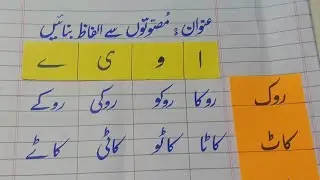 عنوان: مصوتوں سے الفاظ بنائیں
ا و ی ے
روک روکا روکو روکی روکے
کاٹ کاٹا کاٹو کاٹی کاٹے